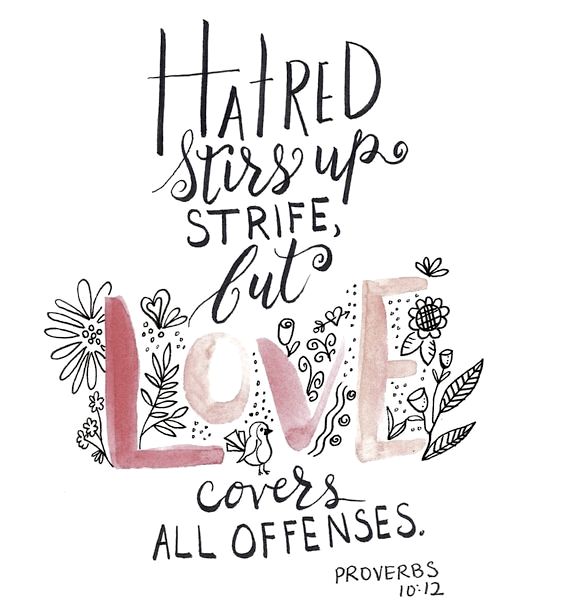 HATRED
stirs up
STRIFE,
but
LOVE
covers
ALL OFFENSES.
PROVERBS
10:12